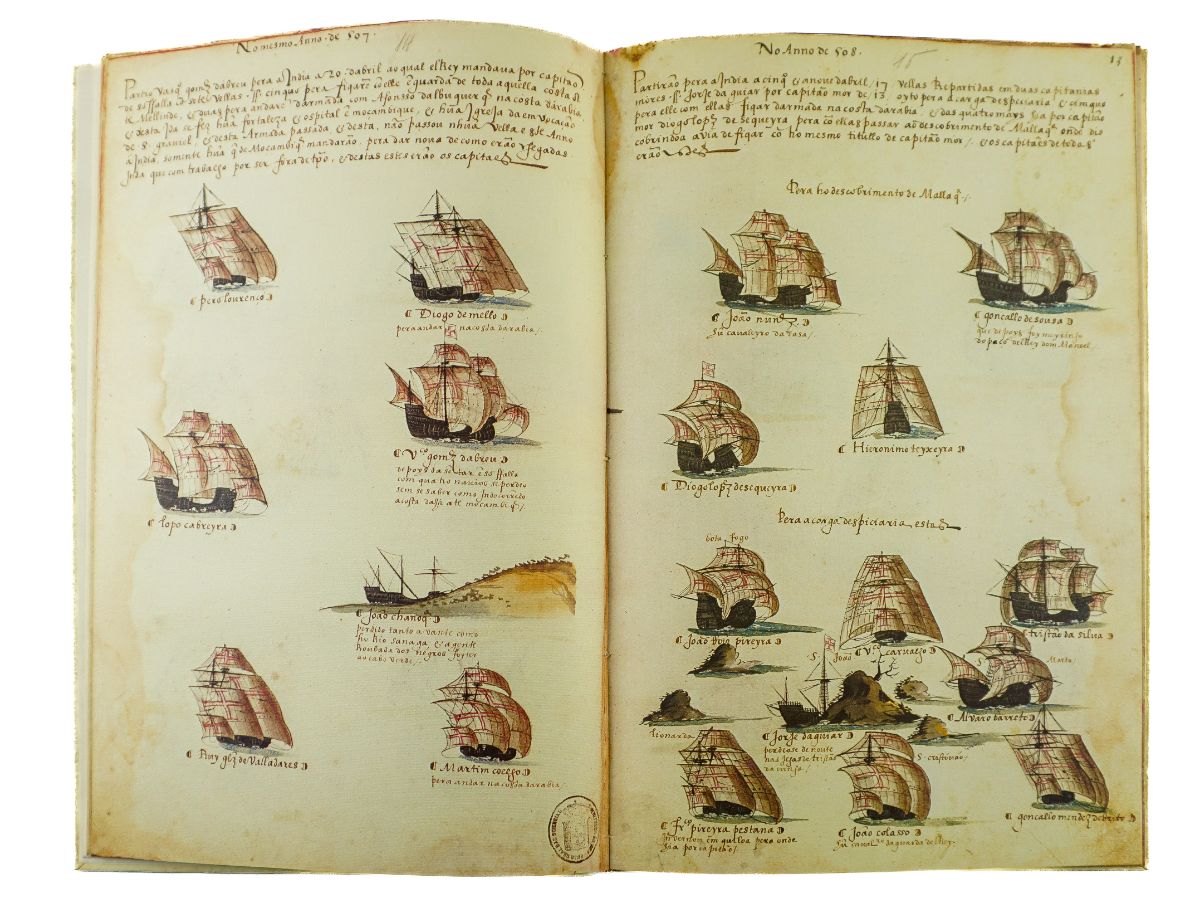 No mesmo Anno. de 507.
Partirão Vasq̃ gomẽz dabreu pera a India a 20. dabril ao qual elRey mandava por capitão
de soffalla cõ sete Vellas. ss. cinquo pera figarẽ cõ elle ẽ guarda de toda aquella costa
te Mellinde, & duas pera andarẽ darmada com Afonso dalbuquerq̃ na costa darabia,
& desta Ida se fez hũa fortaleza & ospital ẽ moçambique, & hũa Igreja da em vocação
de S. graviel, & desta Armada passada & desta, não passou nhũa Vella este Anno
a India, somente hũa q̃ de Mocambiq̃ mandarão, pera dar nova de como erão chegadas
Inda que com trabalho por ser fora de tpõ, & destas estes erão os capitães
pero lourenco
Diogo de mello
pera andar na costa darabia
lopo cabreyra
Vco gomz dabreu
depoys da setar ẽ soffalla
com quatro navios se perdeo
sem se saber como Indo correndo
a costa dalli atte mocambiq̃
João chanoq̃
perdido tanto avante como
ho Rio sanaga, & a gente
Roubada dos negros foy ter
ao cabo verde
Ruy glz̃ de Valladares
Martim coelho
pera andar na costa darabia
No Anno de 508.
15
13
Partirão pera a India a cinq̃ & a nove dabril, 17 Vellas Repartidas em duas capitanias
mores. ss. Jorje daguiar por capitão mor de 13 oyto pera a carga despeciaria & cimquo
pera elle com ellas figar darmada na costa darabia, & das quatro mays hia por capitão
mor diogo lopz̃ de sequeyra pera cõ ellas passar ao descobrimento de Mallaq̃ onde des
cobrindo a via de figar cõ ho mesmo titullo de capitão mor, & os capitães de todas
erão
Pera ho descobrimento de Mallaq̃
João nunz̃
hũ cavaleyro da Rosa
goncallo de sousa
que depoys foy meyrinho
do paço delRey dom Manuel
Diogo lopz̃ de sequeyra
Hieronimo teyxeyra
Pera a carga despiciaria estas
bota fogo
João Roiz pireyra
S. João
Vco carvalho
tristão da silva
S. Marta
Alvaro barreto
Jorje daguiar
perdeose de noute
nas Ilhas de tristão
da cunha
lionarda
frco pireyra pestana
Invernou em quiloa pera onde
hia por capitão
S. cristovão
João colasso
hũ cavalro da guarda delRey
goncallo mendez de brito